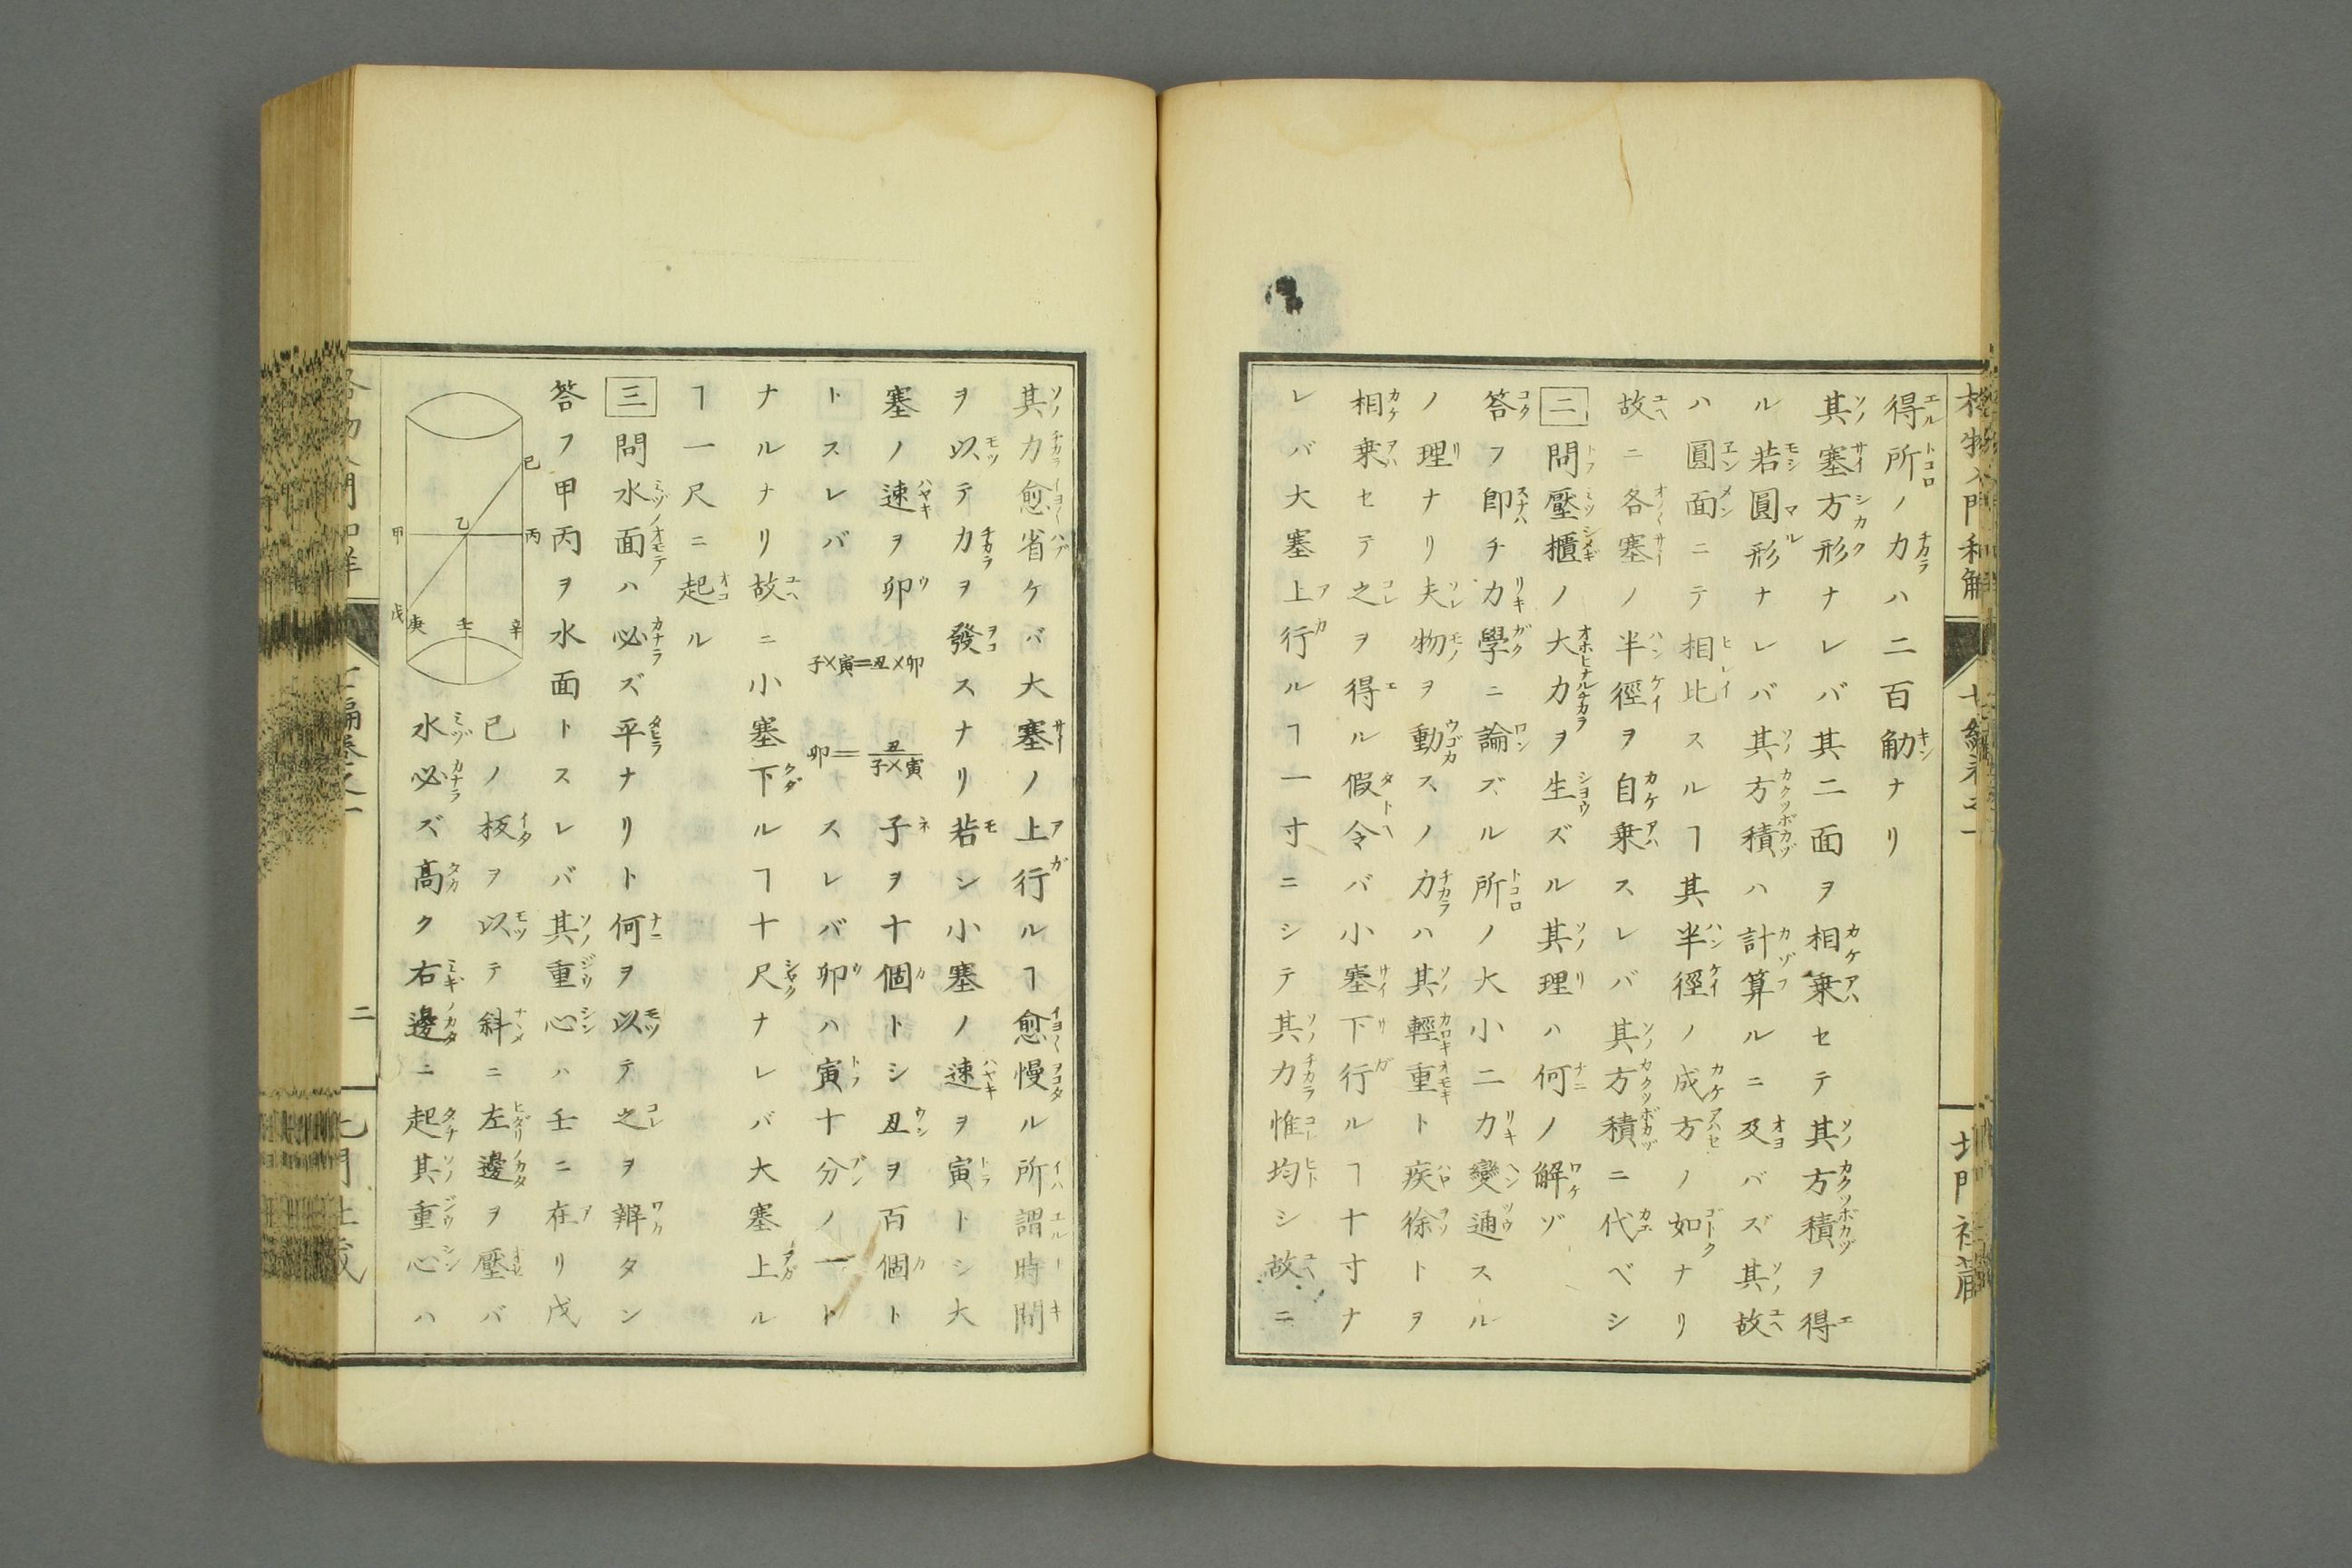 得所ノ力ハ二百觔ナリ
其塞方形ナレバ其二面ヲ相乗セテ其方積ヲ得
ル若圓形ナレバ其方積ハ計算ルニ及バズ其故
ハ圓面ニテ相比スルヿ其半徑ノ成方ノ如ナリ
故ニ各塞ノ半徑ヲ自乗スレバ其方積ニ代ベシ
二 問壓櫃ノ大力ヲ生ズル其理ハ何ノ解ゾ
答フ卽チ力學ニ論ズル所ノ大小二力變通スル
ノ理ナリ夫物ヲ動スノ力ハ其輕重ト疾徐トヲ
相乗セテ之ヲ得ル假令バ小塞下行ルヿ十寸ナ
レバ大塞上行ルヿ一寸ニシテ其力惟均シ故ニ
其力愈省ケバ大塞ノ上行ルヿ愈慢ル所謂時間
ヲ以テ力ヲ發スナリ若シ小塞ノ速ヲ寅トシ大
塞ノ速ヲ卯 子×寅=丑×卯 卯=丑/子×寅 子ヲ十個トシ丑ヲ百個ト
トスレバ スレバ卯ハ寅十分ノ一ト
ナルナリ故ニ小塞下ルヿ十尺ナレバ大塞上ル
ヿ一尺ニ起ル
三 問水面ハ必ズ平ナリト何ヲ以テ之ヲ辨タン
答フ甲丙ヲ水面トスレバ其重心ハ壬ニ在リ戊
已ノ板ヲ以テ斜ニ左邊ヲ壓バ
水必ズ高ク右邊ニ起其重心ハ
已
乙
甲
丙
戊
庚
壬
辛
二